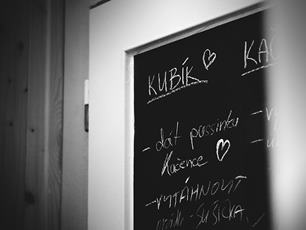 KUBÍK
KAČ
- dát pussinku
Kačence
- VYTÁHNOUT
SUŠIČKA